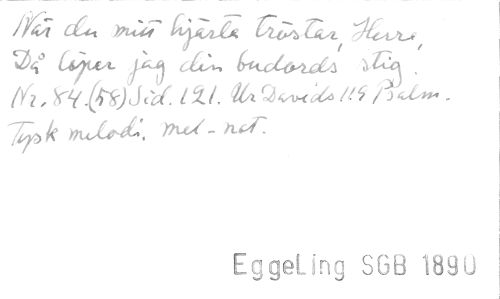 När du mitt hjärta tröstar, Herre,
Då löper jag din budords stig.
Nr. 84. (58) Sid. 121. Ur Davids 119 Psalm.
Tysk melodi. mel-not.
EggeLing SGB 1890